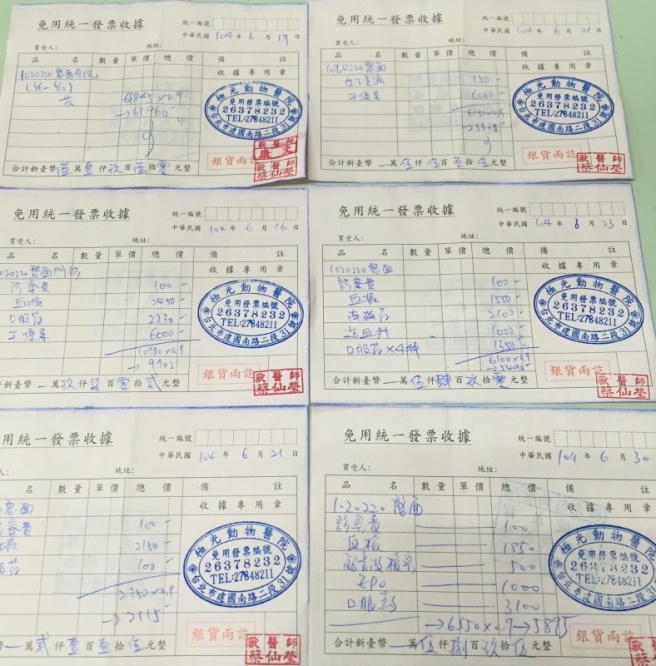 免用統一發票收據
統一編號
中華民國 104 年 6 月 17 日
買受人: 地址:
品 名 數量 單價 總價 備 註
收據專用章
極光動物醫院
免用發票編號
26378232
TEL:27848211
台北市建國南路二段31號
→61960
銀貨兩訖
合計新臺幣 萬 仟 玖 百 拾 零 元整
免用統一發票收據
統一編號
中華民國 104 年 6 月 21 日
買受人: 地址:
品 名 數量 單價 總價 備 註
收據專用章
極光動物醫院
免用發票編號
26378232
TEL:27848211
台北市建國南路二段31號
6000
銀貨兩訖
醫師
蔡仙瑩
合計新臺幣 萬 伍 仟 伍 百 拾 伍 元整
免用統一發票收據
統一編號
中華民國 104 年 6 月 16 日
買受人: 地址:
品 名 數量 單價 總價 備 註
收據專用章
診察費 100
血檢 2450
口服藥 2230
6000
10780×0.9
→9702
極光動物醫院
免用發票編號
26378232
TEL:27848211
台北市建國南路二段31號
銀貨兩訖
醫師
蔡仙瑩
合計新臺幣 萬 玖 仟 柒 百 零 拾 貳 元整
免用統一發票收據
統一編號
中華民國 104 年 6 月 23 日
買受人: 地址:
品 名 數量 單價 總價 備 註
收據專用章
診察費 100
血檢 1550
2100
1000
口服藥×4 1350
6100×0.9
→5490
極光動物醫院
免用發票編號
26378232
TEL:27848211
台北市建國南路二段31號
銀貨兩訖
醫師
蔡仙瑩
合計新臺幣 萬 伍 仟 肆 百 玖 拾 零 元整
用統一發票收據
統一編號
中華民國 104 年 6 月 21 日
地址:
名 數量 單價 總價 備 註
收據專用章
100
2150
100
2350×0.9
→2115
極光動物醫院
免用發票編號
26378232
TEL:27848211
台北市建國南路二段31號
銀貨兩訖
醫師
蔡仙瑩
合計新臺幣 萬 貳 仟 壹 百 壹 拾 伍 元整
免用統一發票收據
統一編號
中華民國 104 年 6 月 30
買受人: 地址:
品 名 數量 單價 總價 備
收據專用章
診察費 100
血檢 1850
500
EPO 1000
口服藥 3100
→6550×0.9→5895
極光動物醫院
免用發票編號
TEL:27848211
台北市建國南路二段31號
銀貨兩訖
蔡仙瑩
合計新臺幣 萬 伍 仟 捌 百 玖 拾 伍 元整